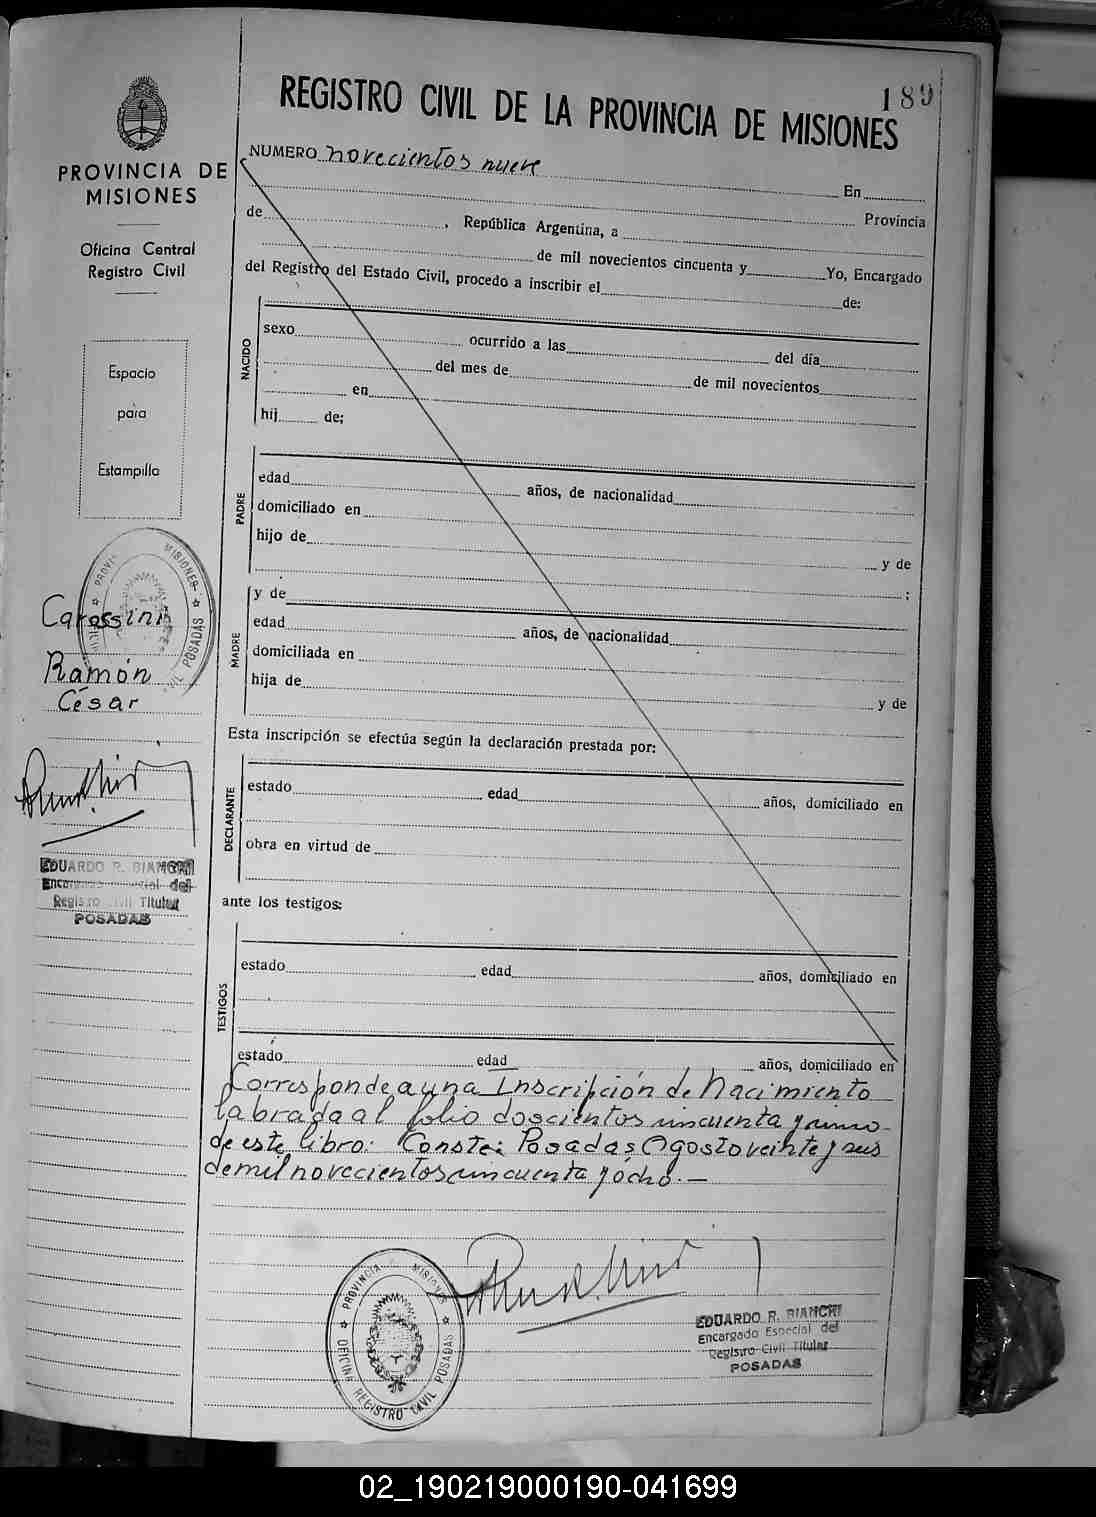 189
REGISTRO CIVIL DE LA PROVINCIA DE MISIONES
PROVINCIA DE
MISIONES
Oficina Central
Registro Civil
Espacio
para
Estampilla
Carossini
Ramón
César
EDUARDO R. BIANCHI
Encargado Especial del
Registro Civil Titular
POSADAS
NUMERO novecientos nueve
En
Provincia
de , República Argentina, a
de mil novecientos cincuenta y Yo, Encargado
del Registro del Estado Civil, procedo a inscribir el de:
NACIDO
sexo ocurrido a las del día
del mes de de mil novecientos
en
hij de;
PADRE
edad años, de nacionalidad
domiciliado en
hijo de y de
;
MADRE
y de
edad años, de nacionalidad
domiciliada en
hija de y de
Esta inscripción se efectúa según la declaración prestada por:
DECLARANTE
estado edad años, domiciliado en
obra en virtud de
ante los testigos:
TESTIGOS
estado edad años, domiciliado en
estado edad años, domiciliado en
Corresponde a una Inscripción de Nacimiento
labrada al folio doscientos cincuenta y uno
de este libro: Conste: Posadas, Agosto veinte y seis
de mil novecientos cincuenta y ocho.—
PROVINCIA MISIONES
OFICINA REGISTRO CIVIL POSADAS
EDUARDO R. BIANCHI
Encargado Especial del
Registro Civil Titular
POSADAS
02_190219000190-041699